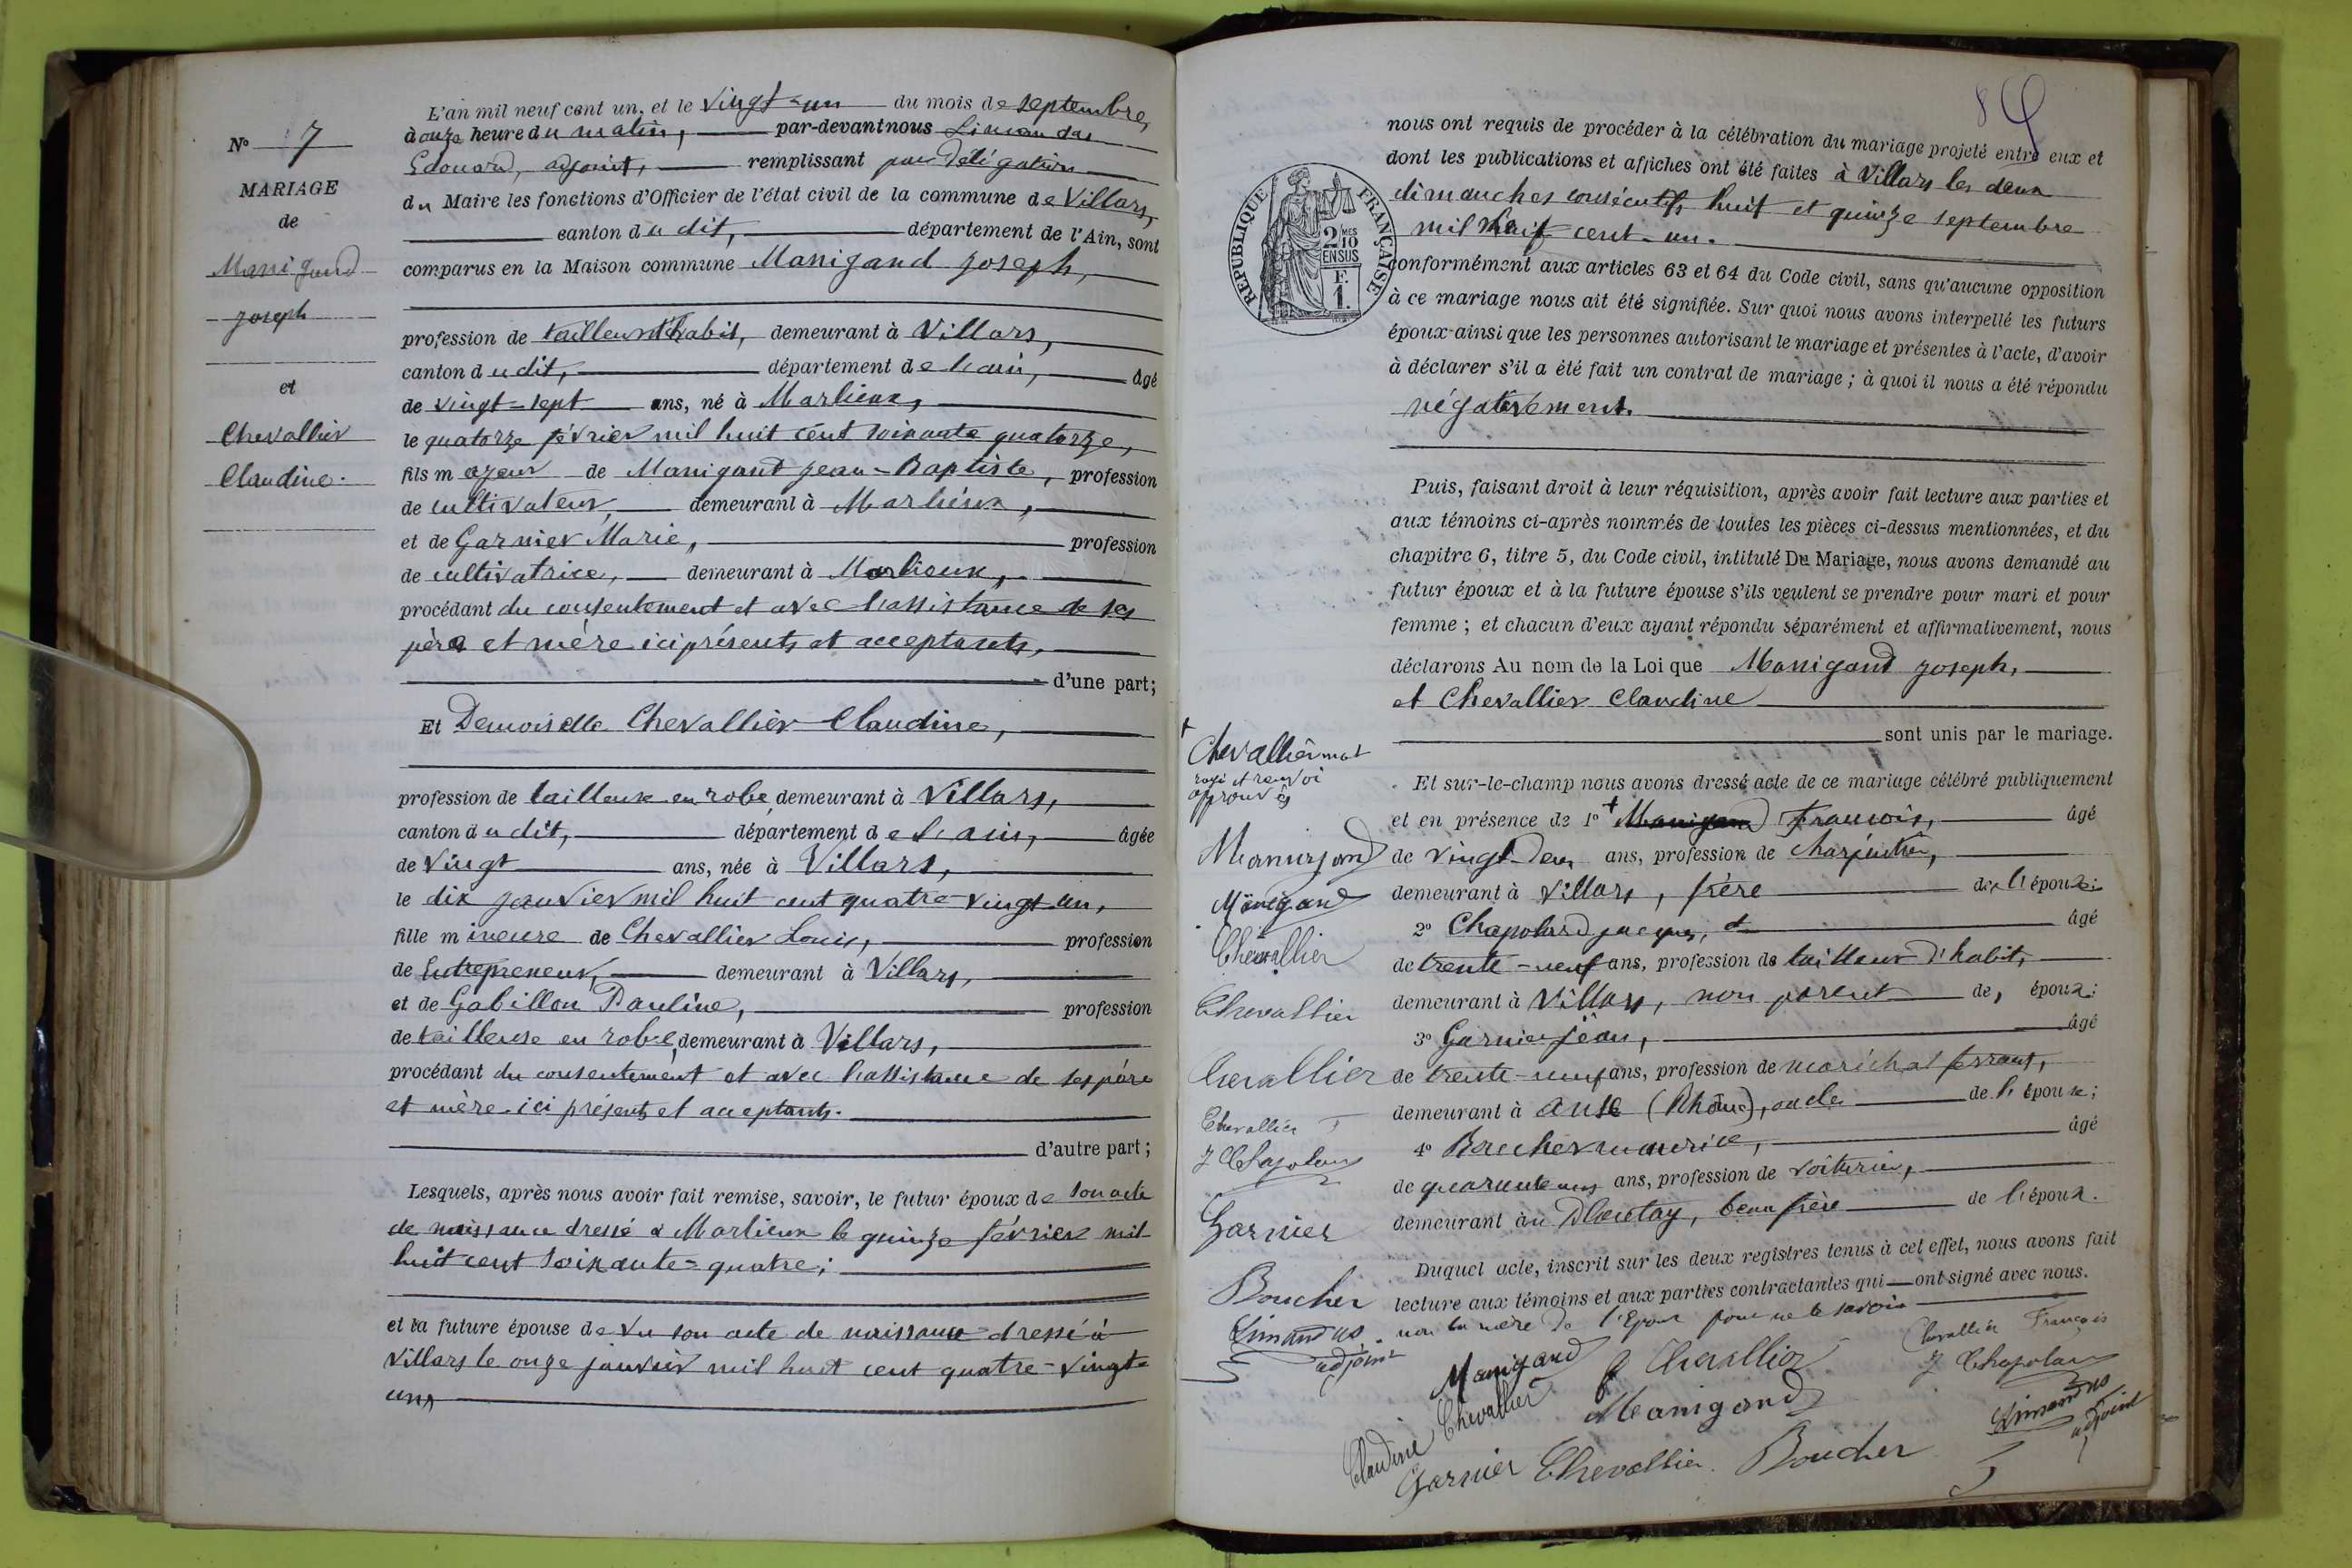 N° 7
MARIAGE
de
Manigand
Joseph
et
Chevallier
Claudine.
L'an mil neuf cent un, et le vingt-un du mois de septembre,
à onze heure du matin, par-devant nous Limandas
Edouard, adjoint, remplissant par délégation
du Maire les fonctions d'Officier de l'état civil de la commune de Villars,
canton du dit, département de l'Ain, sont
comparus en la Maison commune Manigand Joseph,
profession de tailleur d'habit, demeurant à Villars,
canton du dit, département de l'ain, âgé
de vingt-sept ans, né à Marlieux,
le quatorze février mil huit cent soixante quatorze,
fils majeur de Manigand Jean-Baptiste, profession
de cultivateur, demeurant à Marlieux,
et de Garnier Marie, profession
de cultivatrice, demeurant à Marlieux,
procédant du consentement et avec l'assistance de ses
père et mère ici présents et acceptants,
d'une part;
Et Demoiselle Chevallier Claudine,
profession de tailleuse en robe, demeurant à Villars,
canton du dit, département de l'ain, âgée
de vingt ans, née à Villars,
le dix janvier mil huit cent quatre-vingt-un,
fille mineure de Chevallier Louis, profession
de Entrepreneur, demeurant à Villars,
et de Gabillon Pauline, profession
de tailleuse en robe, demeurant à Villars,
procédant du consentement et avec l'assistance de ses père
et mère ici présents et acceptants.
d'autre part;
Lesquels, après nous avoir fait remise, savoir, le futur époux de son acte
de naissance dressé à Marlieux le quinze février mil
huit cent soixante-quatre;
et la future épouse de vu son acte de naissance dressé à
Villars le onze janvier mil huit cent quatre-vingt-
un,
84
REPUBLIQUE FRANÇAISE
2 MES
10
EN SUS
F.
1.
nous ont requis de procéder à la célébration du mariage projeté entre eux et
dont les publications et affiches ont été faites à Villars les deux
dimanches consécutifs huit et quinze septembre
mil neuf cent-un.
conformément aux articles 63 et 64 du Code civil, sans qu'aucune opposition
à ce mariage nous ait été signifiée. Sur quoi nous avons interpellé les futurs
époux ainsi que les personnes autorisant le mariage et présentes à l'acte, d'avoir
à déclarer s'il a été fait un contrat de mariage; à quoi il nous a été répondu
négativement.
Puis, faisant droit à leur réquisition, après avoir fait lecture aux parties et
aux témoins ci-après nommés de toutes les pièces ci-dessus mentionnées, et du
chapitre 6, titre 5, du Code civil, intitulé Du Mariage, nous avons demandé au
futur époux et à la future épouse s'ils veulent se prendre pour mari et pour
femme; et chacun d'eux ayant répondu séparément et affirmativement, nous
déclarons Au nom de la Loi que Manigand Joseph,
et Chevallier Claudine
sont unis par le mariage.
Et sur-le-champ nous avons dressé acte de ce mariage célébré publiquement
et en présence de 1° + Manigand François, âgé
de vingt-deux ans, profession de charpentier,
demeurant à Villars, frère de l'épouse;
2° Chapolard Jacques, âgé
de trente-neuf ans, profession de tailleur d'habit,
demeurant à Villars, non parent de, époux;
3° Garnier Jean, âgé
de trente-neuf ans, profession de maréchal ferrant,
demeurant à Anse (Rhône), oncle de l'épouse;
4° Boucher maurice, âgé
de quarante ans, profession de voiturier,
demeurant au Plantay, beau frère de l'époux.
Duquel acte, inscrit sur les deux registres tenus à cet effet, nous avons fait
lecture aux témoins et aux parties contractantes qui ont signé avec nous.
non la mère de l'Epoux pour ne le savoir
+
Chevallier mot
rayé et renvoi
approuvés
Manigand
Manigand
Chevallier
Chevallier
Chevallier
Chevallier F
J Chapolard
Garnier
Boucher
Limandas
adjoint
Manigand
Chevallier
Chevallier François
J Chapolard
Claudine Chevallier
Manigand
Limandas
adjoint
Garnier Chevallier Boucher